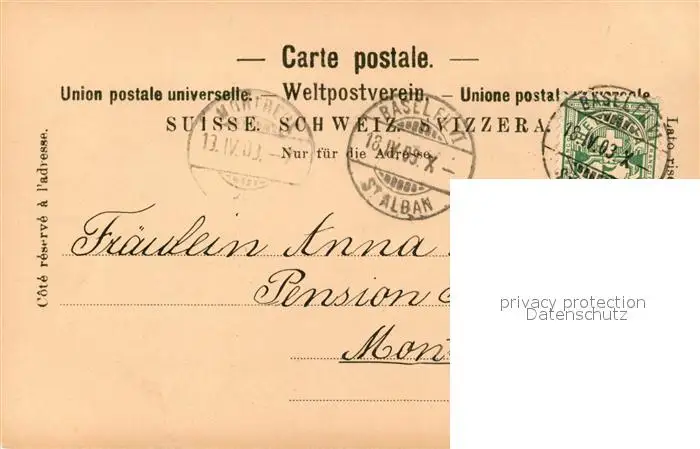 — Carte postale. —
Union postale universelle. — Weltpostverein. — Unione postale universale.
SUISSE. SCHWEIZ. SVIZZERA.
Nur für die Adresse.
Côté réservé à l'adresse.
13.IV.03.
BASEL
18.IV.03.X
ST. ALBAN
BASEL
18.IV.03.X
Fräulein Anna
Pension
Mont
privacy protection
Datenschutz